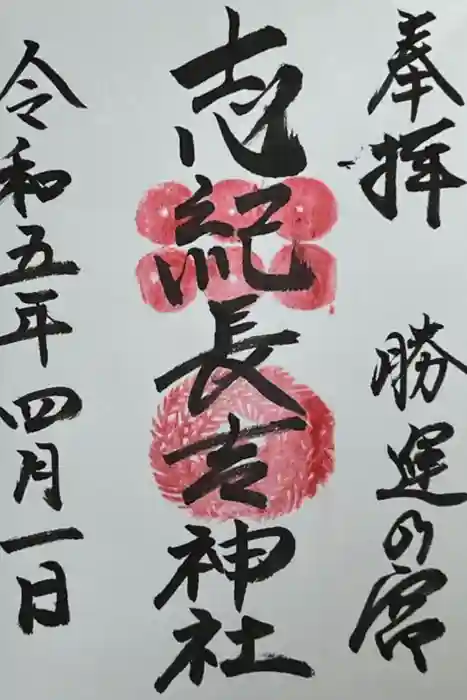 奉拝 勝運の宮
志紀長吉神社
令和五年四月一日